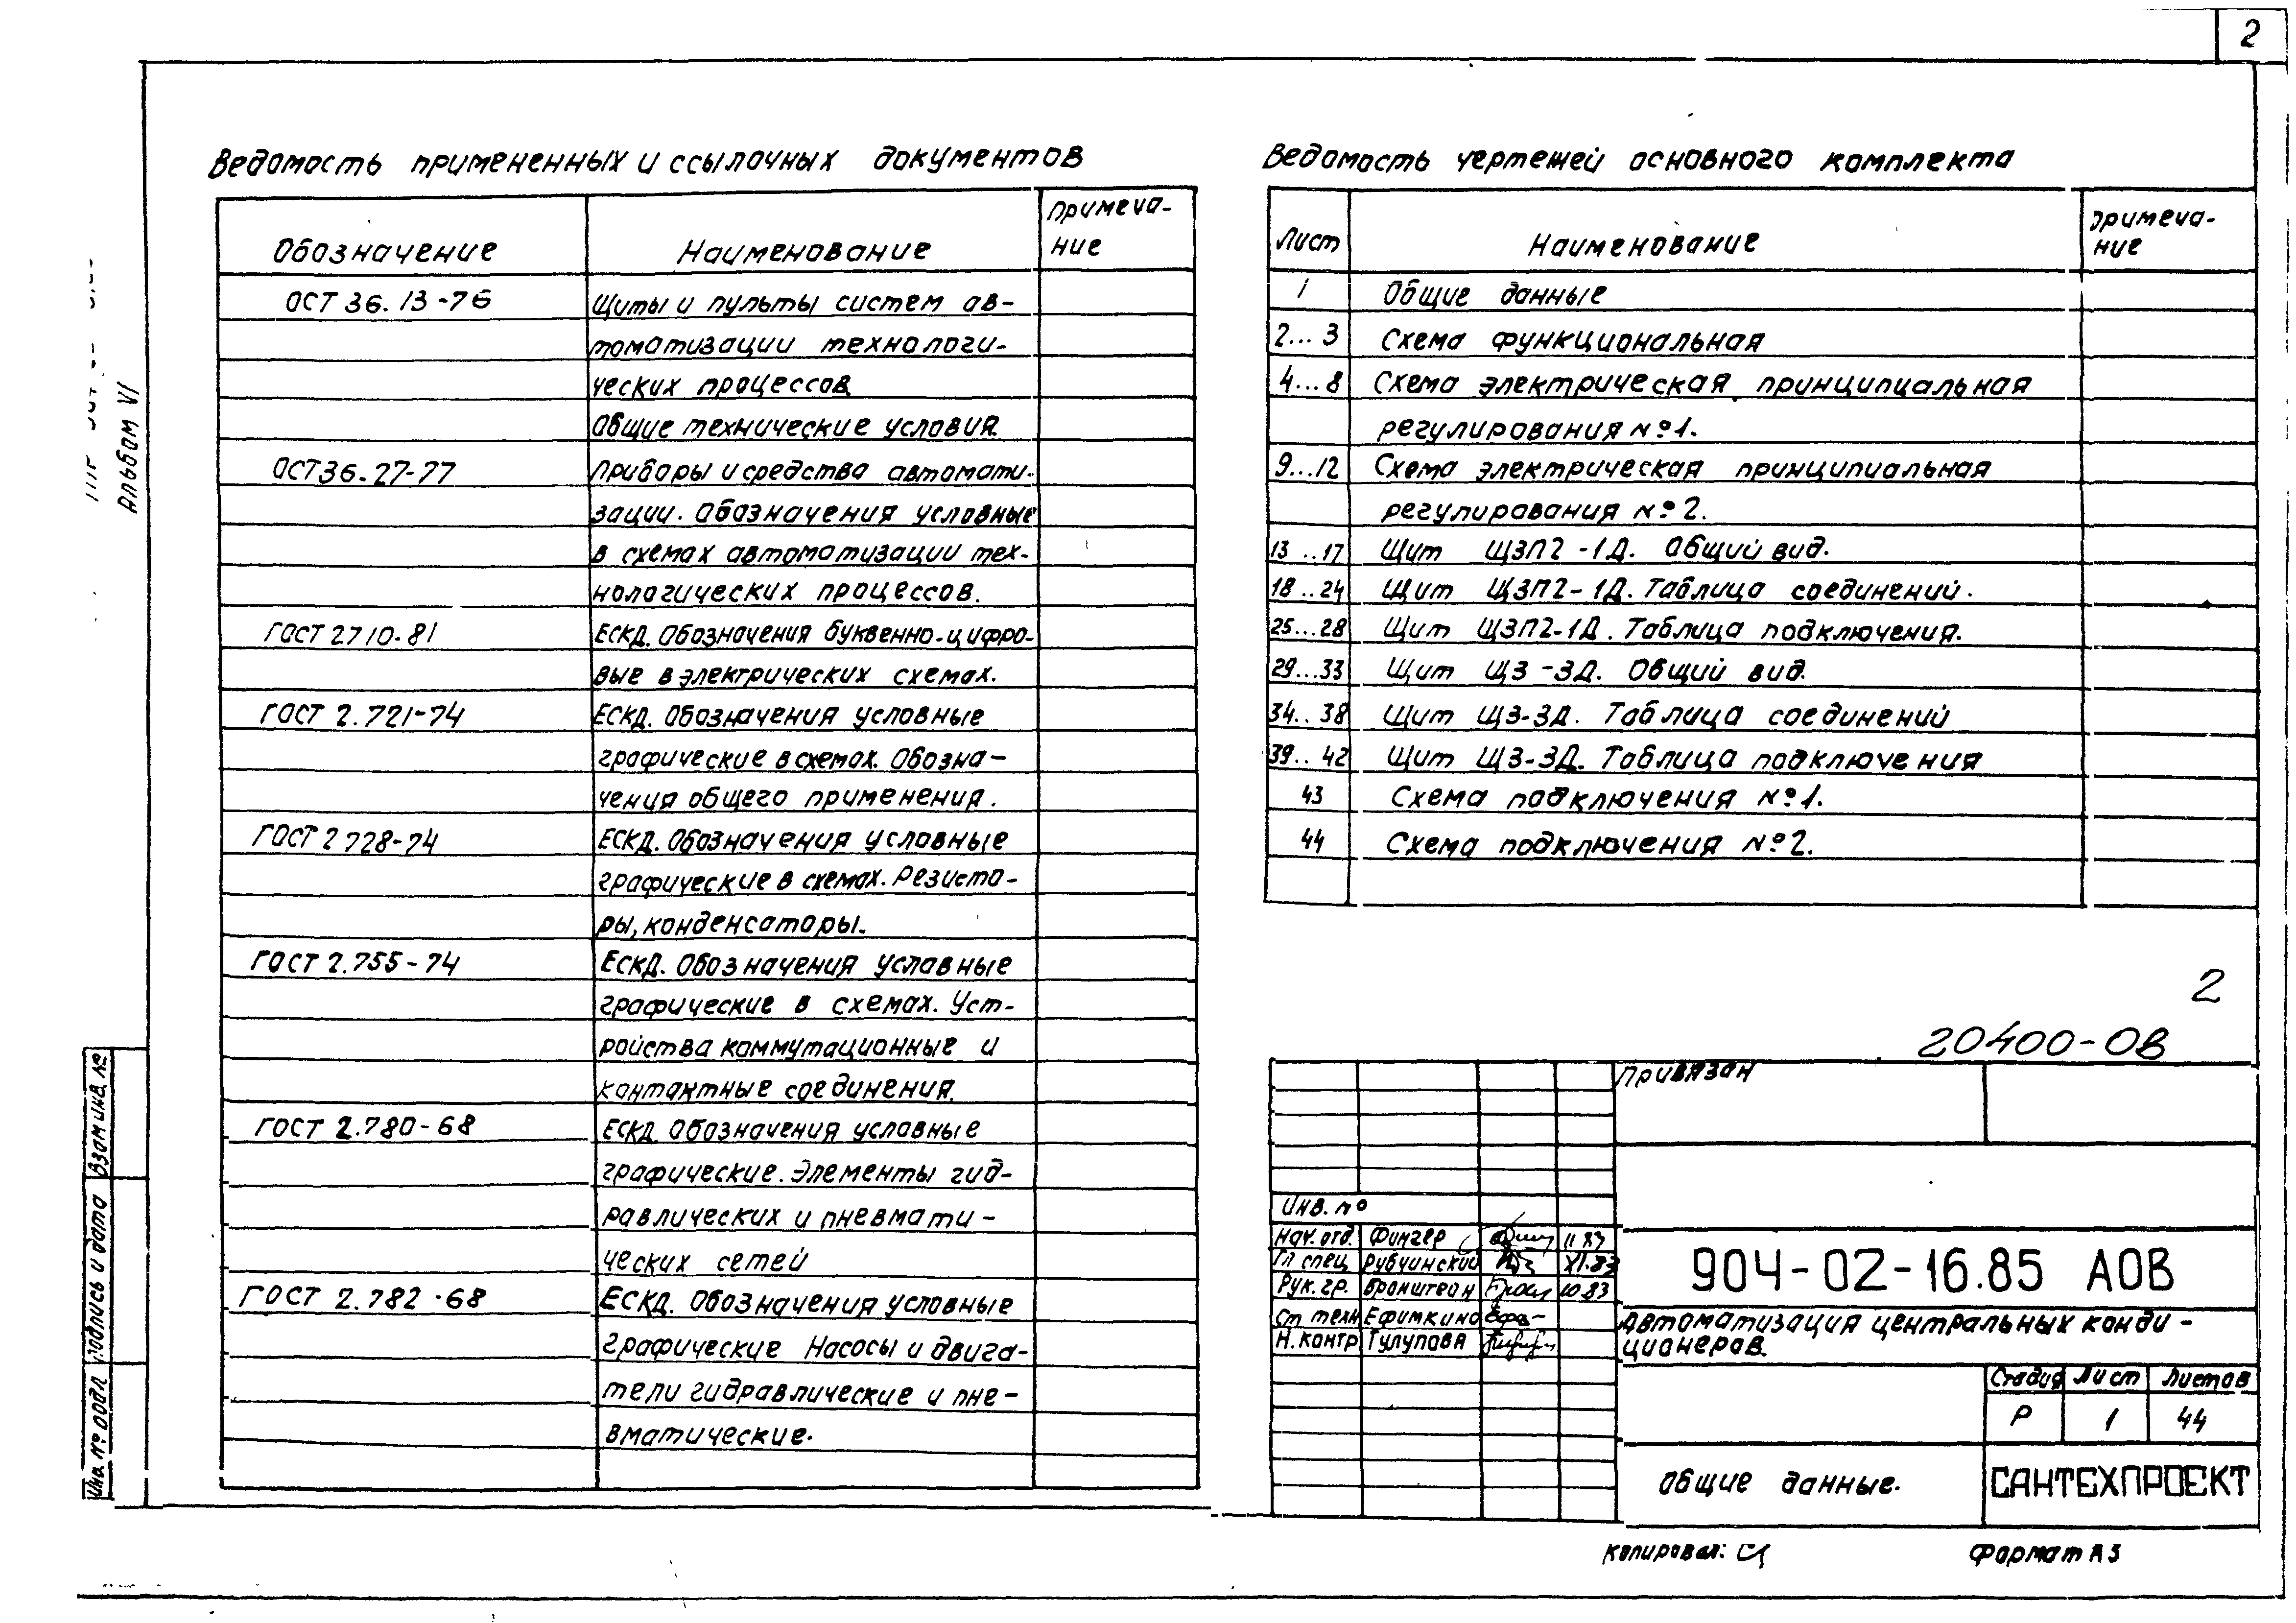 2
Ведомость примененных и ссылочных документов
Обозначение Наименование Примеча-
ние
ОСТ 36.13-76 Щиты и пульты систем ав-
томатизации технологи-
ческих процессов
Общие технические условия.
ОСТ 36.27-77 Приборы и средства автомати-
зации. Обозначения условные
в схемах автоматизации тех-
нологических процессов.
ГОСТ 2710-81 ЕСКД. Обозначения буквенно-цифро-
вые в электрических схемах.
ГОСТ 2.721-74 ЕСКД. Обозначения условные
графические в схемах. Обозна-
чения общего применения.
ГОСТ 2 728-74 ЕСКД. Обозначения условные
графические в схемах. Резисто-
ры, конденсаторы.
ГОСТ 2.755-74 ЕСКД. Обозначения условные
графические в схемах. Уст-
ройства коммутационные и
контактные соединения.
ГОСТ 2.780-68 ЕСКД. Обозначения условные
графические. Элементы гид-
равлических и пневмати-
ческих сетей
ГОСТ 2.782-68 ЕСКД. Обозначения условные
графические Насосы и двига-
тели гидравлические и пне-
вматические.
Ведомость чертежей основного комплекта
Лист Наименование Примеча-
ние
1 Общие данные
2...3 Схема функциональная
4...8 Схема электрическая принципиальная
регулирования №1.
9...12 Схема электрическая принципиальная
регулирования №2.
13..17 Щит ЩЗП2-1Д. Общий вид.
18..24 Щит ЩЗП2-1Д. Таблица соединений.
25...28 Щит ЩЗП2-1Д. Таблица подключения.
29...33 Щит ЩЗ-3Д. Общий вид.
34..38 Щит ЩЗ-3Д. Таблица соединений
39..42 Щит ЩЗ-3Д. Таблица подключения
43 Схема подключения №1.
44 Схема подключения №2.
2
20400-08
Привязан
Инв. №
Нач. отд. Фингер 11 83
Гл спец Рубчинский XI.83
Рук. гр. Бронштейн 10.83
Ст техн Ефимкина
Н. контр Тулупова
904-02-16.85 АОВ
Автоматизация центральных конди-
ционеров.
Стадия Лист Листов
Р 1 44
Общие данные.
САНТЕХПРОЕКТ
Копировал:
Формат А3
Альбом VI
Взам инв. №
Подпись и дата
Инв. № подл